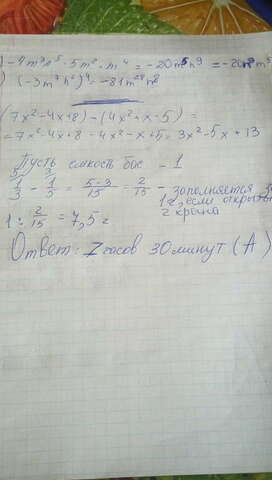 -4m³n⁵ · 5m² · m⁴ = -20m⁵n⁹ = -20n⁹m⁵
) (-3m⁷h²)⁴ = -81m²⁸n⁸
(7x² - 4x + 8) - (4x² + x - 5) =
= 7x² - 4x + 8 - 4x² - x + 5 = 3x² - 5x + 13
Пусть емкость бас - 1
1/3 - 1/3 = 5-3/15 = 2/15 - заполняется
если открыты
1 : 2/15 = 7,5 г 2 крана
Ответ: 7 часов 30 минут (А)